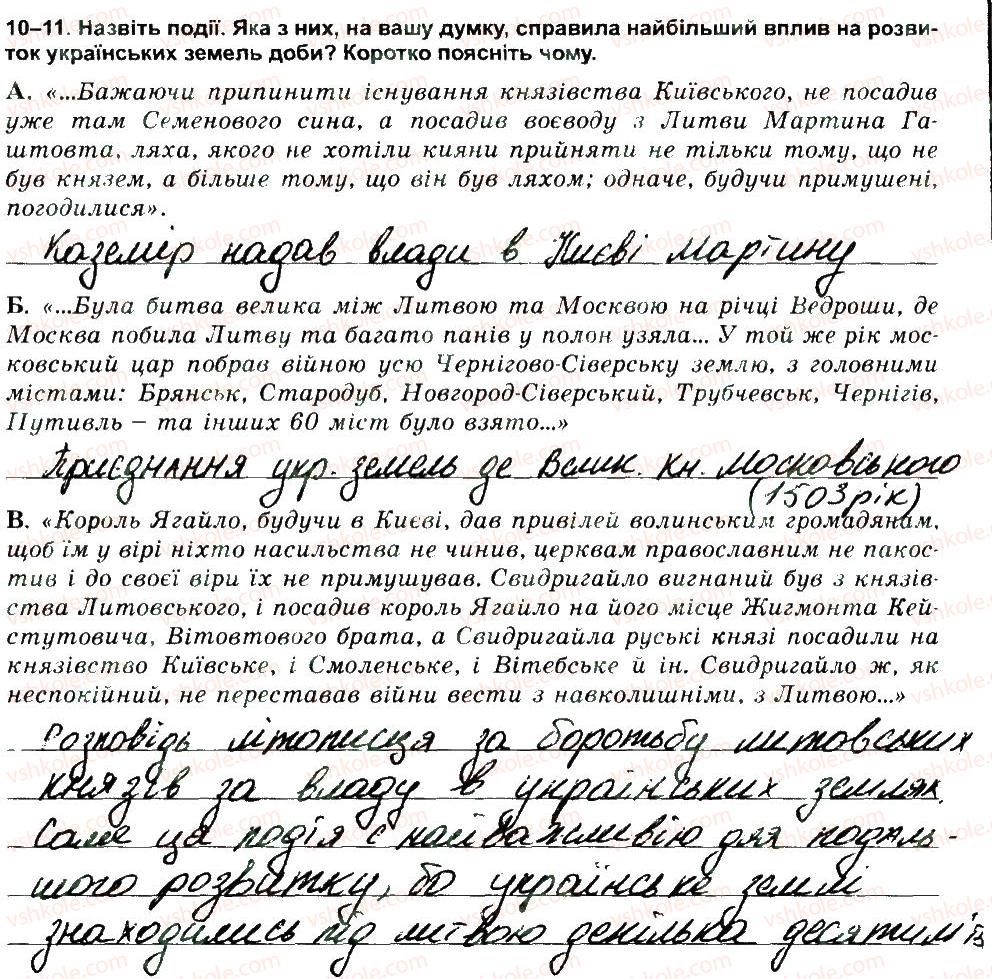 10–11. Назвіть події. Яка з них, на вашу думку, справила найбільший вплив на розви-
ток українських земель доби? Коротко поясніть чому.
А. «...Бажаючи припинити існування князівства Київського, не посадив
уже там Семенового сина, а посадив воєводу з Литви Мартина Га-
штовта, ляха, якого не хотіли кияни прийняти не тільки тому, що не
був князем, а більше тому, що він був ляхом; одначе, будучи примушені,
погодилися».
Каземір надав влади в Києві Мартину
Б. «...Була битва велика між Литвою та Москвою на річці Ведроши, де
Москва побила Литву та багато панів у полон узяла... У той же рік мос-
ковський цар побрав війною усю Чернігово-Сіверську землю, з головними
містами: Брянськ, Стародуб, Новгород-Сіверський, Трубчевськ, Чернігів,
Путивль – та інших 60 міст було взято...»
Приєднання укр. земель де Велик. кн. Московського
(1503 рік)
В. «Король Ягайло, будучи в Києві, дав привілей волинським громадянам,
щоб їм у вірі ніхто насильства не чинив, церквам православним не пакос-
тив і до своєї віри їх не примушував. Свидригайло вигнаний був з князів-
ства Литовського, і посадив король Ягайло на його місце Жигмонта Кей-
стутовича, Вітовтового брата, а Свидригайла руські князі посадили на
князівство Київське, і Смоленське, і Вітебське й ін. Свидригайло ж, як
неспокійний, не переставав війни вести з навколишніми, з Литвою...»
Розповідь літописця за боротьбу литовських
князів за владу в українських землях.
Саме ця подія є найважливію для подаль-
шого розвитку, бо українське землі
знаходились під литвою декілька десятиліть
vshkole.com